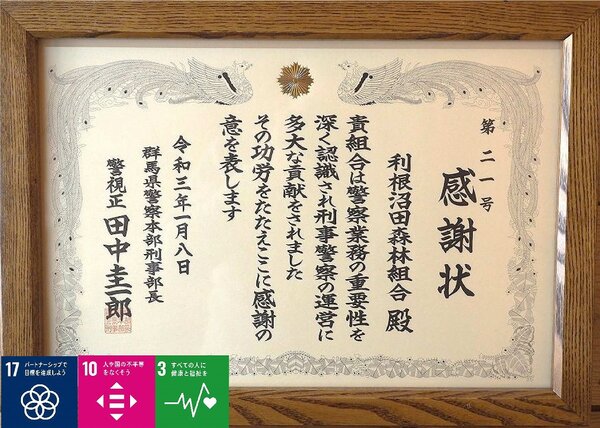 第二一号
感謝状
利根沼田森林組合 殿
貴組合は警察業務の重要性を
深く認識され刑事警察の運営に
多大な貢献をされました
その功労をたたえここに感謝の
意を表します
令和三年一月八日
群馬県警察本部刑事部長
警視正 田中圭一郎
17 パートナーシップで
目標を達成しよう
10 人や国の不平等
をなくそう
3 すべての人に
健康と福祉を